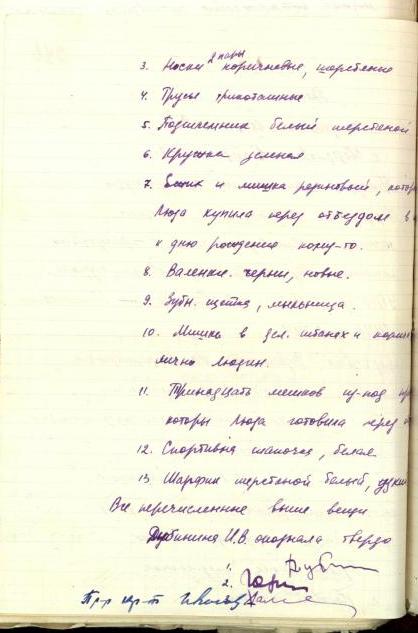 3. Носки 2 пары коричневые, шерстеные
4. Трусы трикоташные
5. Подшлемник белый шерстеной
6. Кружка зеленая
7. Бычик и мишка резиновый, котор
Люда купила перед отъездом в
к дню рождения кому-то.
8. Валенки. черни, новые.
9. Зубн. щетка, мыльница.
10. Мишка в зел. штанах и
лично Людин.
11. Тринадцать мешков из-под
которы Люда готовила перед
12. Спортивня шапочка, белая
13. Шарфик шерстеной белый, узкий
Все перечисленные выше вещи
Дубинина И.В. опознала твердо
1. Дуб
2.